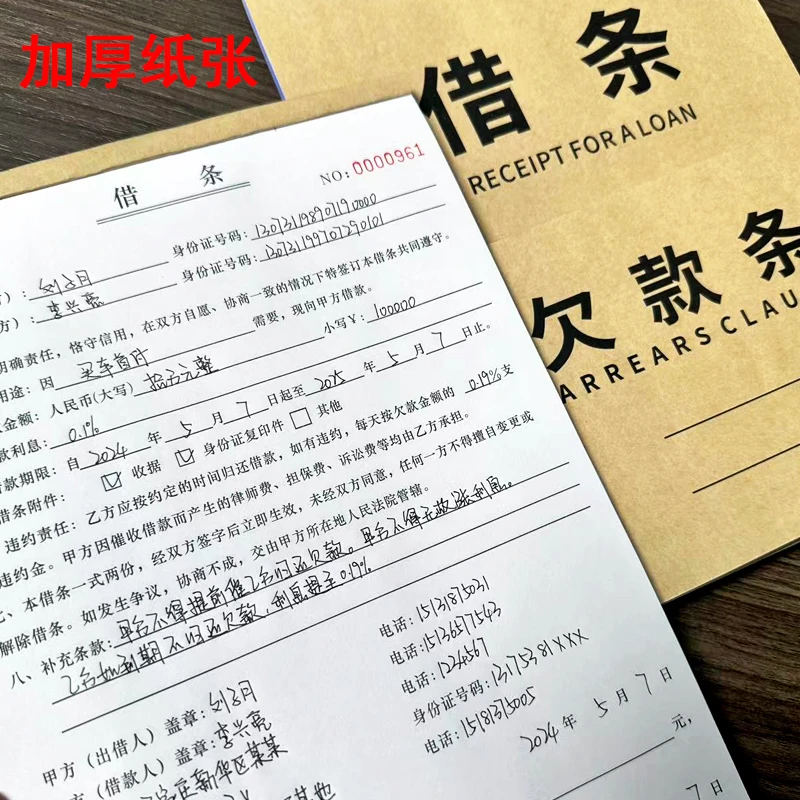 加厚纸张
借 条
RECEIPT FOR A LOAN
欠款条
ARREARS CLAU
借 条
NO: 0000961
身份证号码: 130731198907190000
方): 身份证号码: 130731199707290101
方): 李兴亮
明确责任，恪守信用，在双方自愿、协商一致的情况下特签订本借条共同遵守。
用途: 因 买车首付 需要，现向甲方借款。
金额: 人民币(大写) 拾万元整 小写¥: 100000
款利息: 0.1%
借款期限: 自 2024 年 5 月 7 日起至 2025 年 5 月 7 日止。
借条附件: ☑ 收据 ☑ 身份证复印件 □ 其他
违约责任: 乙方应按约定的时间归还借款，如有违约，每天按欠款金额的 0.19% 支
违约金。甲方因催收借款而产生的律师费、担保费、诉讼费等均由乙方承担。
七、本借条一式两份，经双方签字后立即生效，未经双方同意，任何一方不得擅自变更或
解除借条。如发生争议，协商不成，交由甲方所在地人民法院管辖。
八、补充条款: 甲方不得提前催乙方归还欠款。甲方不得无故涨利息。
乙方如到期不归还欠款，利息提至0.19%
甲方（出借人）盖章: 电话: 15131875031
方（借款人）盖章: 李兴亮 电话: 15136577543
新华区某某 电话: 1234567
身份证号码: 13175381XXX
电话: 15181375005
2024 年 5 月 7 日
元，
7 日